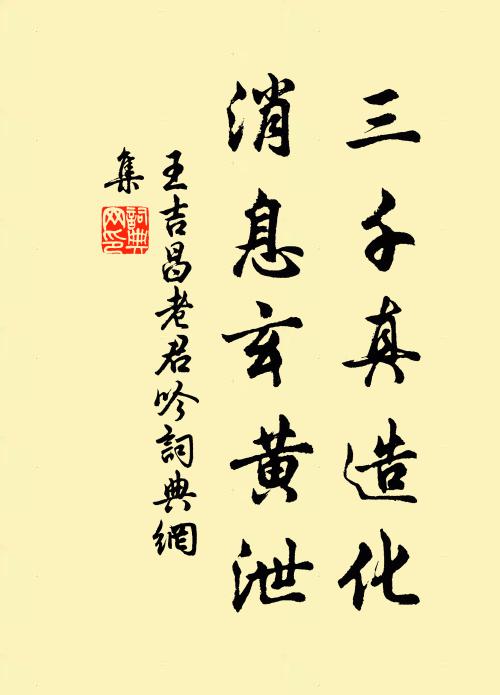 三千真造化
消息玄黄泄
王吉昌老君吟詞典網
集
詞典网印